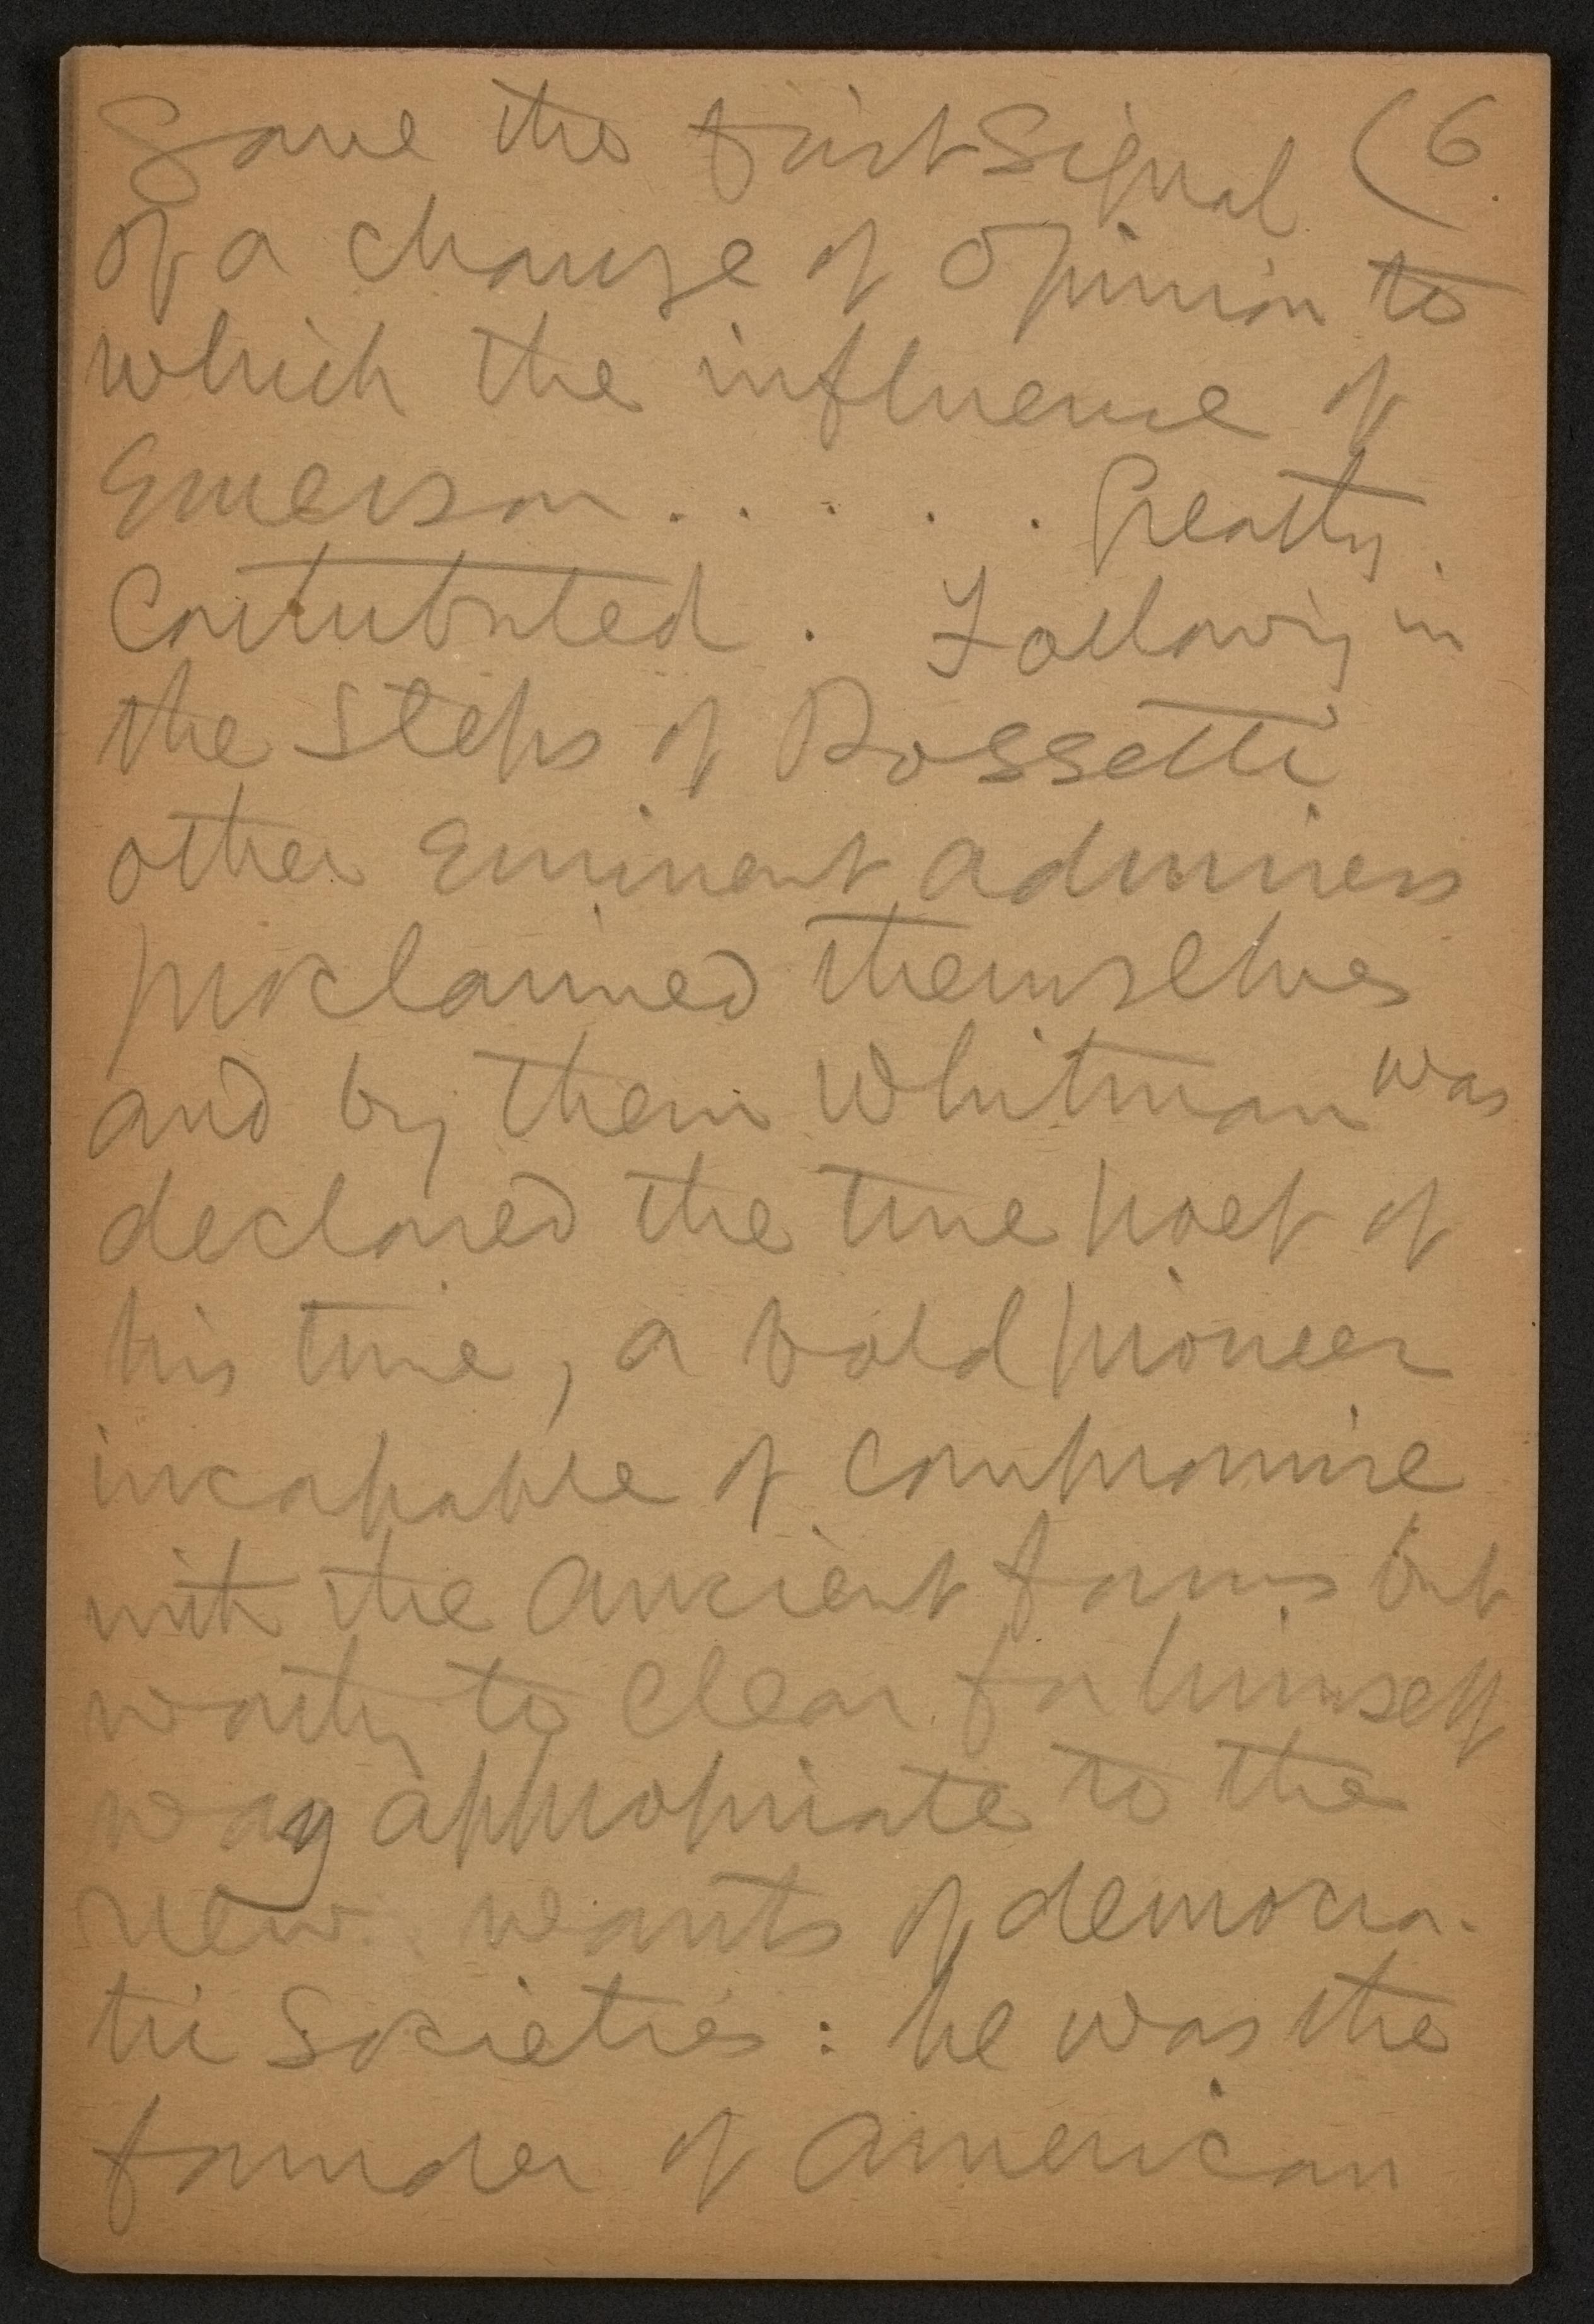 gave the first signal (6.
of a change of opinion to
which the influence of
Emerson . . . . . greatly
contributed. Following in
the steps of Rossetti
other eminent admirers
proclaimed themselves
and by them Whitman was
declared the true poet of
his time, a bold pioneer
incapable of compromise
with the ancient forms but
worthy to clear for himself
way appropriate to the
new wants of democra-
tic societies: he was the
founder of American